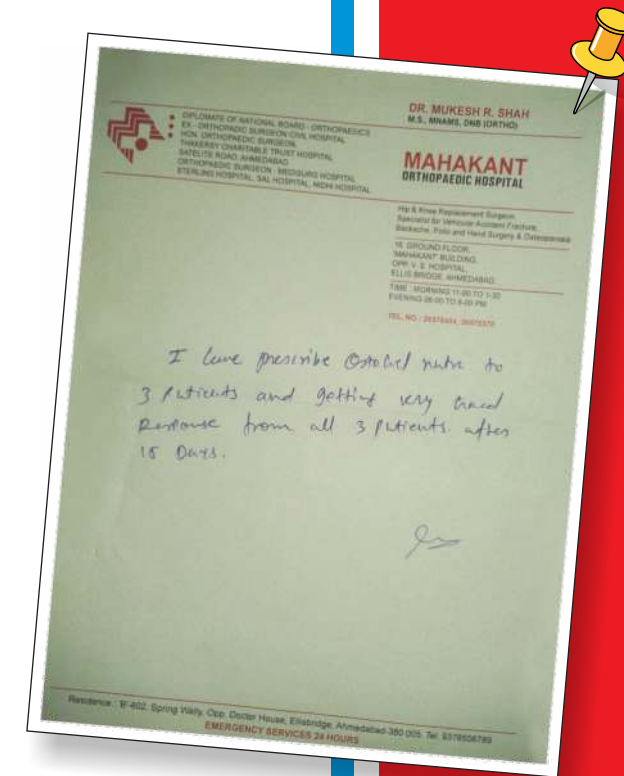 DR. MUKESH R. SHAH
M.S., MNAMS, DNB (ORTHO)
DIPLOMATE OF NATIONAL BOARD - ORTHOPAEDICS
EX - ORTHOPADIC SURGEON CIVIL HOSPITAL
HON. ORTHOPAEDIC SURGEON,
THAKEREY CHARITABLE TRUST HOSPITAL
SATELITE ROAD, AHMEDABAD
ORTHOPAEDIC SURGEON - MEDISURG HOSPITAL
STERLING HOSPITAL, SAL HOSPITAL, NIDHI HOSPITAL
MAHAKANT
ORTHOPAEDIC HOSPITAL
Hip & Knee Replacement Surgeon
Specialist for Vehicular Accident Fracture,
Backache, Polio and Hand Surgery & Osteoporosis
16, GROUND FLOOR,
"MAHAKANT" BUILDING,
OPP. V. S. HOSPITAL,
ELLIS BRIDGE, AHMEDABAD.
TIME : MORNING 11-00 TO 1-30
EVENING 06-00 TO 8-00 PM
TEL. NO. :
I have prescribe to
3 patients and getting very good
Response from all 3 patients after
15 Days.
Residence : Spring Wally, Opp. Doctor House, Ellisbridge, Ahmedabad-380 005. Tel.
EMERGENCY SERVICES 24 HOURS